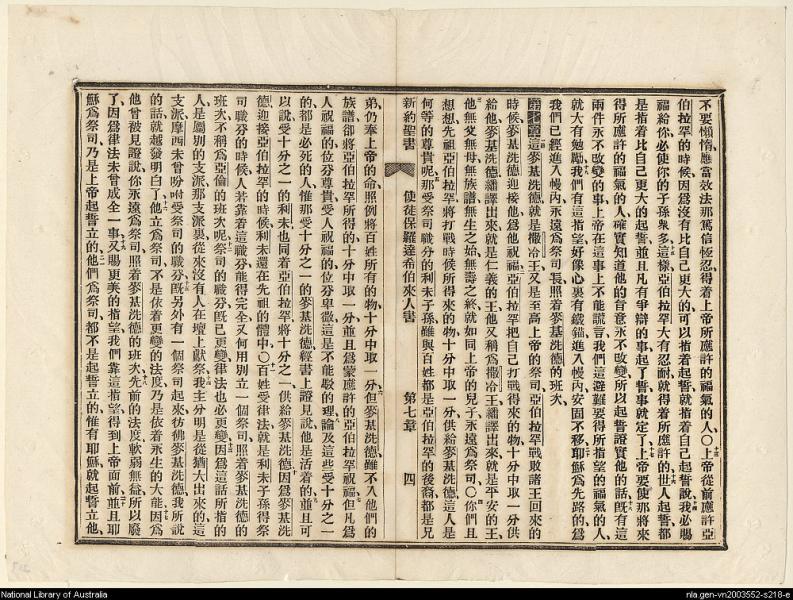 不要懶惰、應當效法那篤信恆忍得着上帝所應許的福氣的人、〇上帝從前應許亞
伯拉罕的時候、因爲沒有比自己更大的可以指着起誓、就指着自己起誓說、我必賜
福給你必使你的子孫衆多、這樣亞伯拉罕大有忍耐就得着所應許的、世人起誓都
是指着比自己更大的起誓、並且凡有爭辯的事、起了誓事就定了、上帝要使那將來
得所應許的福氣的人、確實知道他的旨意永不改變、所以起誓證實他的話、既有這
兩件永不改變的事、上帝在這事上不能謊言、我們這避難要得所指望的福氣的人、
就大有勉勵、我們有這指望、好像心裏有鐵錨、進入幔內安固不移、耶穌爲先路的、爲
我們已經進入幔內、永遠爲祭司長、照着麥基洗德的班次、
第七章這麥基洗德、就是撒冷王、又是至高上帝的祭司、亞伯拉罕戰敗諸王回來的
時候、麥基洗德迎接他、爲他祝福、亞伯拉罕把自己打戰得來的物、十分中取一分供
給他、麥基洗德繙譯出來、就是仁義的王、他又稱爲撒冷王、繙譯出來、就是平安的王、
他無父無母、無族譜、無生之始、無壽之終、就如同上帝的兒子、永遠爲祭司〇你們且
想想先祖亞伯拉罕、將打戰時候所得來的物、十分中取一分、供給麥基洗德、這人是
何等的尊貴呢、那受祭司職分的利未子孫、雖與百姓都是亞伯拉罕的後裔、都是兄
新約聖書 使徒保羅達希伯來人書 第七章 四
弟、仍奉上帝的命、照例將百姓所有的物、十分中取一分、但麥基洗德、雖不入他們的
族譜、卻將亞伯拉罕所得的、十分中取一分、並且爲蒙應許的亞伯拉罕祝福、但凡爲
人祝福的位分尊貴、受人祝福的位分卑微、這是不能駁的理論、及這些受十分之一
的、都是必死的人、惟那受十分之一的麥基洗德、經書上證見說、他是活着的、並且可
以說受十分之一的利未、也同着亞伯拉罕將十分之一供給麥基洗德、因爲麥基洗
德迎接亞伯拉罕的時候、利未還在先祖的體中、〇百姓受律法、就是利未子孫得祭
司職分的時候、人若靠着這職分能得完全、又何用別立一個祭司、照着麥基洗德的
班次、不稱爲亞倫的班次呢、祭司的職分、旣已更變、律法也必更變、因爲這話所指的
人、是屬別的支派、那支派裏、從來沒有人在壇上獻祭、我主分明是從猶大出來的、這
支派、摩西未曾吩咐受祭司的職分、旣另外有一個祭司起來、彷彿麥基洗德、我所說
的話就越發明白了、他立爲祭司、不是依着更變的法度、乃是依着永生的大能、因爲
他曾被見證說、你永遠爲祭司、照着麥基洗德的班次、先前的法度、軟弱無益、所以廢
了、因爲律法未曾成全一事、又賜更美的指望、我們靠這指望、得到上帝面前、並且耶
穌爲祭司、乃是上帝起誓立的、他們爲祭司、都不是起誓立的、惟有耶穌、就起誓立他、
National Library of Australia
nla.gen-vn2003552-s218-e